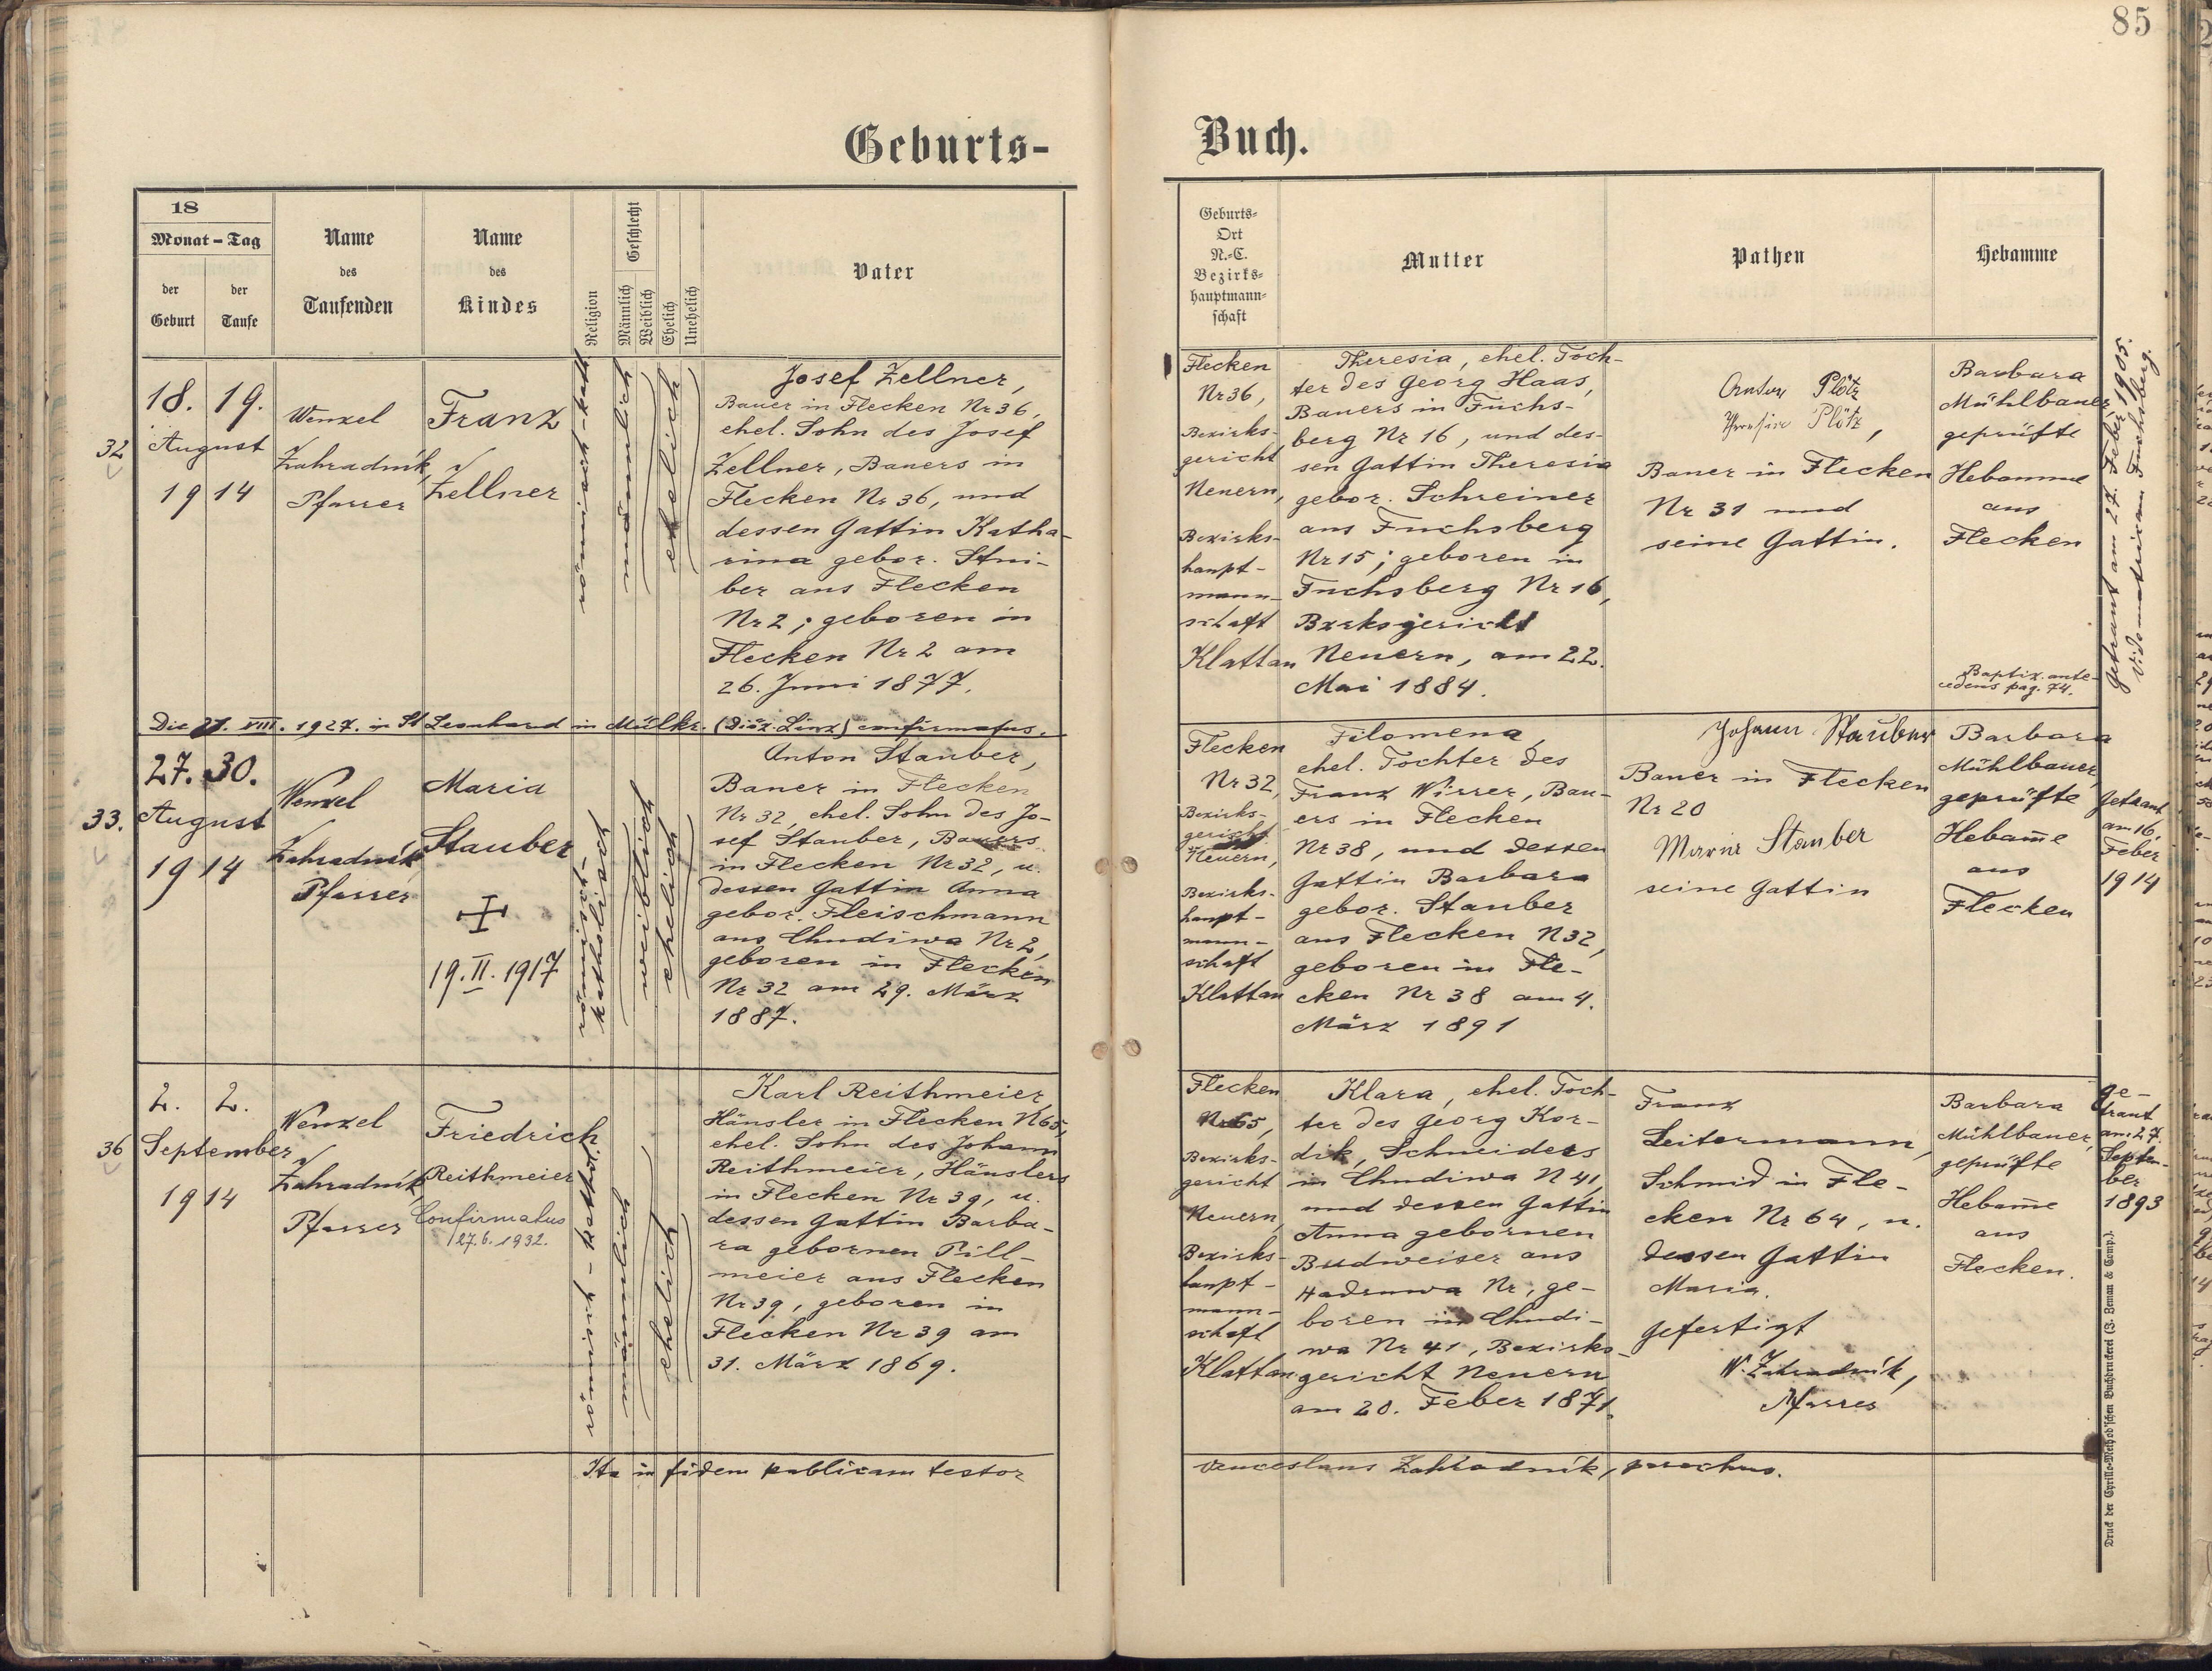 85
Geburts-
Buch.
18
Monat - Tag
der
Geburt
der
Taufe
Name
des
Taufenden
Name
des
Kindes
Religion
Geschlecht
Männlich
Weiblich
Ehelich
Unehelich
Vater
Geburts-
Ort
N.-C.
Bezirks-
hauptmann-
schaft
Mutter
Pathen
Hebamme
32
18. 19.
August
1914
Wenzel
Zahradník,
Pfarrer
Franz
Zellner
römisch-kath.
männlich
ehelich
Josef Zellner,
Bauer in Flecken Nr 36,
ehel. Sohn des Josef
Zellner, Bauers in
Flecken Nr 36, und
dessen Gattin Katha-
rina gebor. Stui-
ber aus Flecken
Nr 2; geboren in
Flecken Nr 2 am
26. Juni 1877.
Flecken
Nr 36,
Bezirks-
gericht
Neuern,
Bezirks-
haupt-
mann-
schaft
Klattau
Theresia, ehel. Toch-
ter des Georg Haas,
Bauers in Fuchs-
berg Nr 16, und des-
sen Gattin Theresia
gebor. Schreiner
aus Fuchsberg
Nr 15; geboren in
Fuchsberg Nr 16,
Bzrksgericht
Neuern, am 22.
Mai 1884.
Anton Plötz
Theresia Plötz,
Bauer in Flecken
Nr 31 und
seine Gattin.
Barbara
Mühlbauer,
geprüfte
Hebamme
aus
Flecken
Baptiz. ante-
cedens pag. 74.
Getraut am 27. Feber 1905.
Vide matricam Fuchsberg.
Die 21. VIII. 1927. in St Leonhard in Mülkr. (Diöz. Linz) confirmatus.
33.
27. 30.
August
1914
Wenzel
Zahradník
Pfarrer
Maria
Stauber
19. II. 1917
römisch-
katholisch
weiblich
ehelich
Anton Stauber,
Bauer in Flecken
Nr 32, ehel. Sohn des Jo-
sef Stauber, Bauers
in Flecken Nr 32, u.
dessen Gattin Anna
gebor. Fleischmann
aus Chudiwa Nr 2,
geboren in Flecken
Nr 32 am 29. März
1887.
Flecken
Nr 32,
Bezirks-
gericht
Neuern,
Bezirks-
haupt-
mann-
schaft
Klattau
Filomena,
ehel. Tochter des
Franz Wirrer, Bau-
ers in Flecken
Nr 38, und dessen
Gattin Barbara
gebor. Stauber
aus Flecken N 32,
geboren in Fle-
cken Nr 38 am 4.
März 1891
Johann Stauber
Bauer in Flecken
Nr 20
Maria Stauber
seine Gattin
Barbara
Mühlbauer,
geprüfte
Hebam̄e
aus
Flecken
Getraut
am 16.
Feber
1914
36
2. 2.
September
1914
Wenzel
Zahradník,
Pfarrer
Friedrich
Reithmeier
Confirmatus
27.6.1932.
römisch-kathol.
männlich
ehelich
Karl Reithmeier,
Häusler in Flecken N 65,
ehel. Sohn des Johann
Reithmeier, Häuslers
in Flecken Nr 39, u.
dessen Gattin Barba-
ra gebornen Pill-
meier aus Flecken
Nr 39, geboren in
Flecken Nr 39 am
31. März 1869.
Flecken
Nr 65,
Bezirks-
gericht
Neuern,
Bezirks-
haupt-
mann-
schaft
Klattau
Klara, ehel. Toch-
ter des Georg Kor-
dik, Schneiders
in Chudiwa N 41,
und dessen Gattin
Anna gebornen
Budweiser aus
Hadruwa Nr; ge-
boren in Chudi-
wa Nr 41, Bezirks-
gericht Neuern
am 20. Feber 1871.
Franz
Leitermann,
Schmid in Fle-
cken Nr 64, u.
dessen Gattin
Maria.
gefertigt
W. Zahradník,
Pfarrer
Barbara
Mühlbauer,
geprüfte
Hebam̄e
aus
Flecken.
ge-
traut
am 27.
Septem-
ber
1893
Ita in fidem publicam testor
Venceslaus Zahradník, parochus.
Druck der Cyrillo-Method'schen Buchdruckerei (J. Zeman & Comp.).